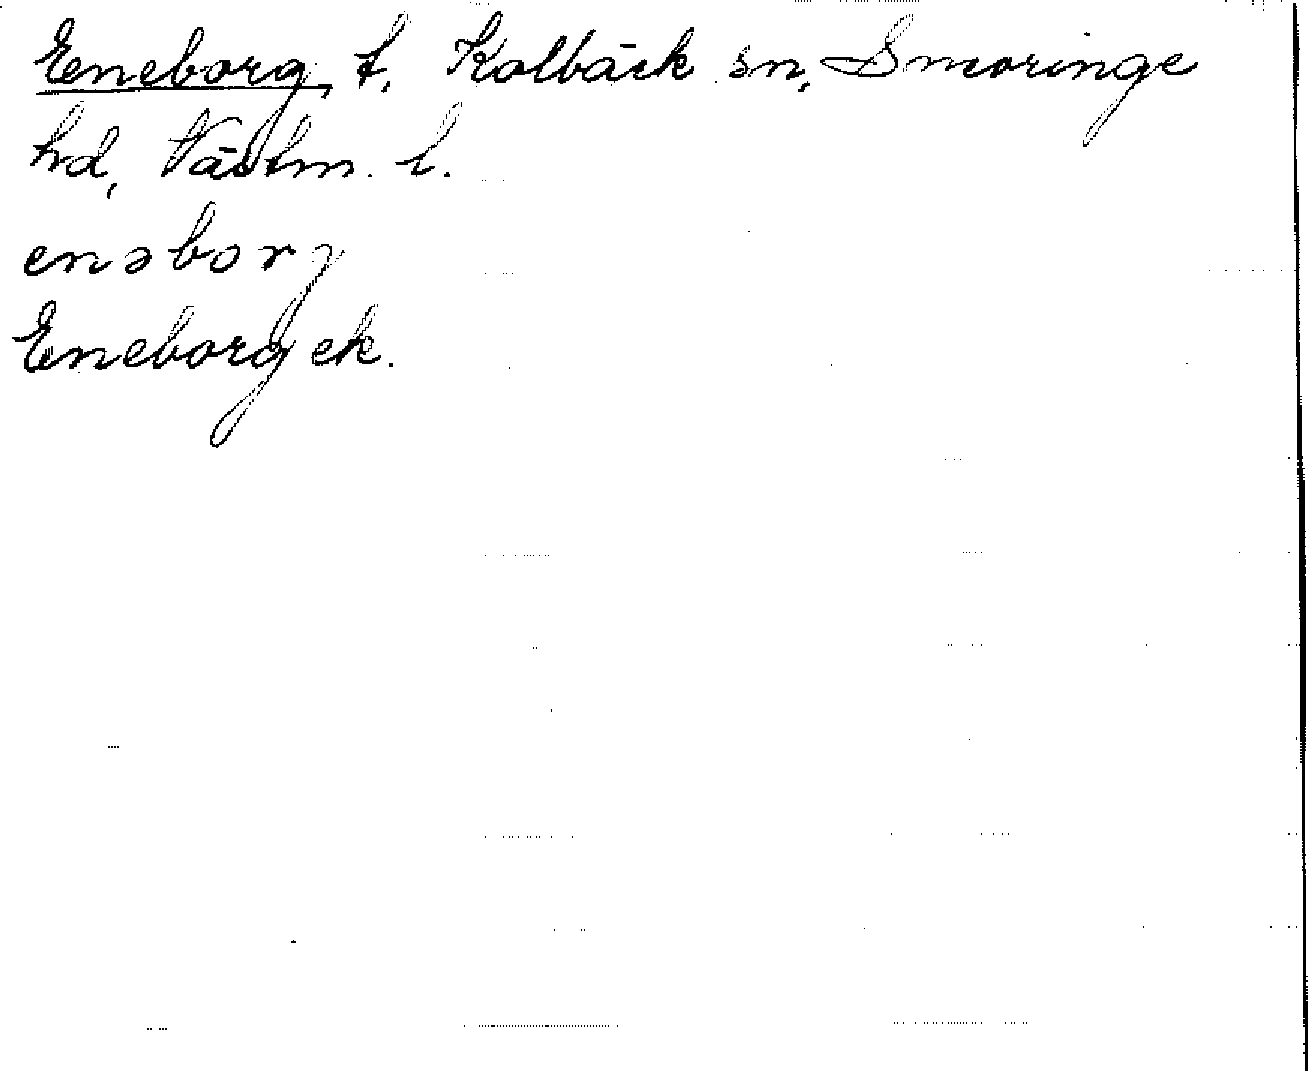 Eneborg, t, Kolbäck sn, Snevringe
hd, Västm. l.
enəborj
Eneborg ek.